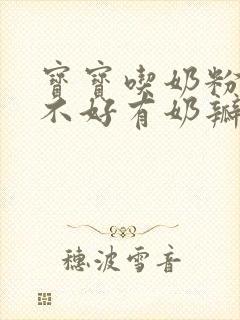 寶寶喫奶粉
不好有奶瓣
穗波雪音